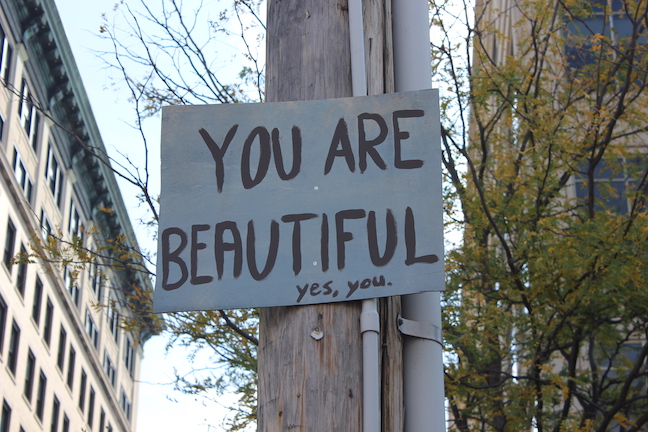 YOU ARE
BEAUTIFUL
yes, you.